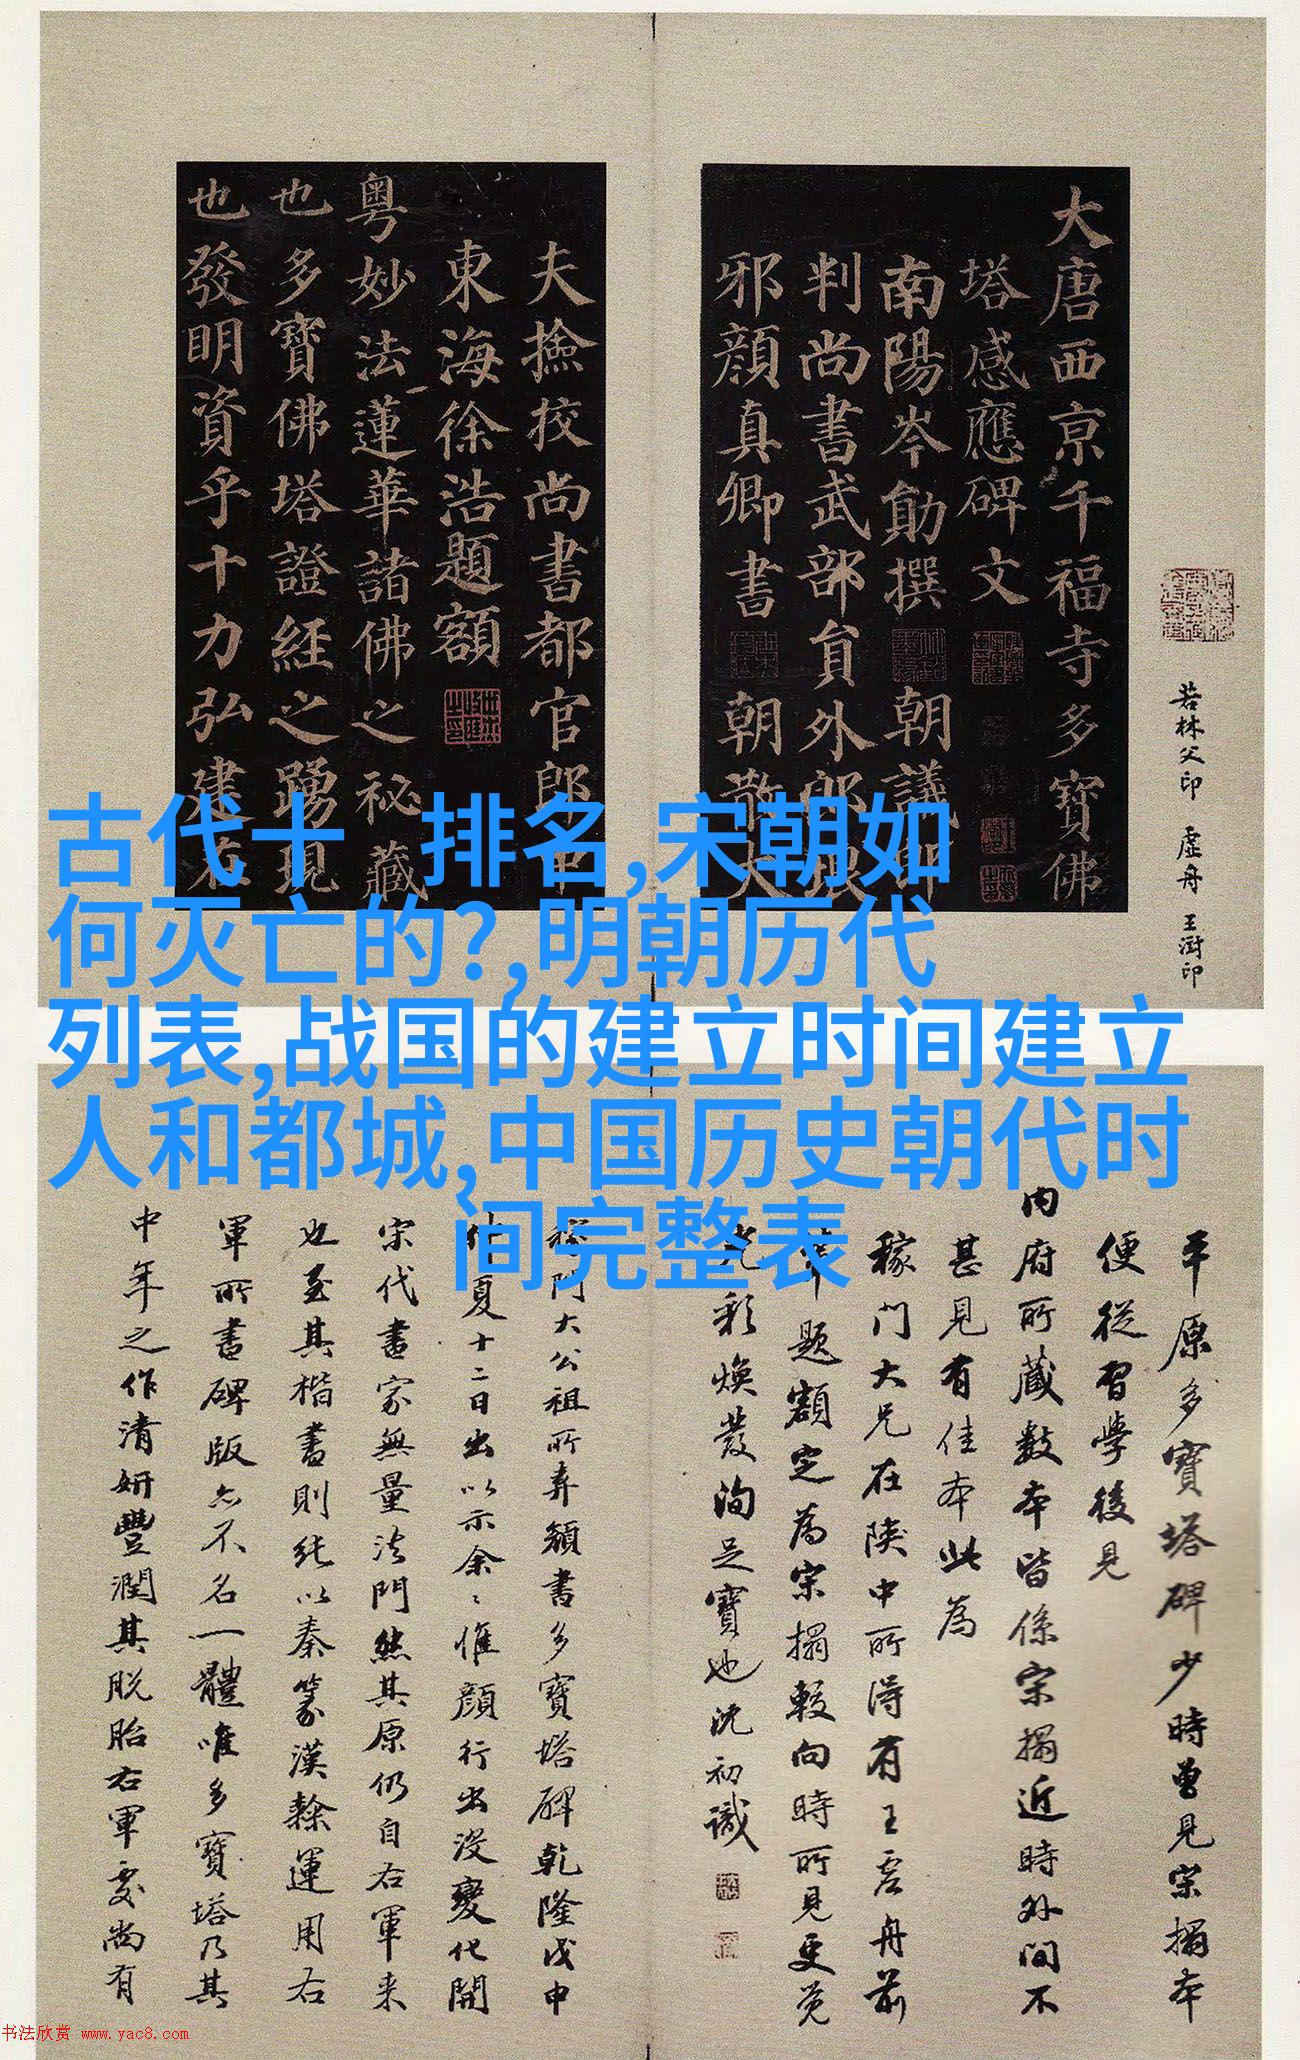 大唐西京千福寺多寶佛
塔感應碑文
南陽岑勛撰 朝議郎
判尚書武部員外郎琅
邪顏真卿書 朝散大
夫撿挍尚書都官郎中
東海徐浩題額
粵妙法蓮華諸佛之祕藏
也多寶佛塔證經之踴現
也發明資乎十力弘建在
若林父印 虛舟 王澍印
古代十 排名,宋朝如
何灭亡的?,明朝历代
列表,战国的建立时间建立
人和都城,中国历史朝代时
间完整表
平原多寶塔碑少時曾見宋搨本
便從習學後見
內府所藏數本皆係宋搨近時外間不
甚見有佳本此為
稼門大兄在陝中所得有王虛舟前
輩題額定為宋搨較向時所見更覺
光彩煥發洵足寶也沈初識
稼門大公祖所弆顏書多寶塔碑乾隆戊申
仲夏十二日出以示余〻惟顏行出沒變化開
宋代書家無量法門然其原仍自右軍来
也至其楷書則純以秦篆漢隸運用右
軍所書碑版亦不名一體唯多寶塔乃其
中年之作清妍豐潤其脫胎右軍處尚有
书法欣赏 www.yac8.com